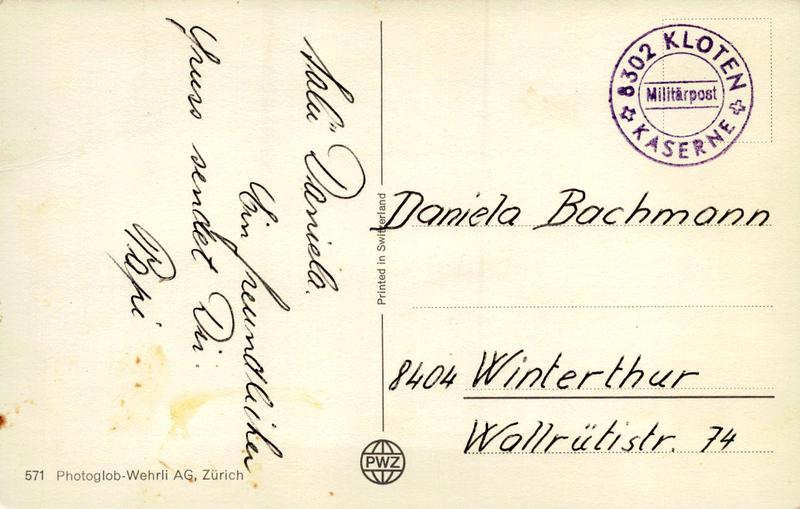 Salü Daniela.
Ein freundlicher
Gruss sendet Dir
Papi
Printed in Switzerland
8302 KLOTEN
Militärpost
KASERNE
Daniela Bachmann
8404 Winterthur
Wallrütistr. 74
PWZ
571 Photoglob-Wehrli AG, Zürich